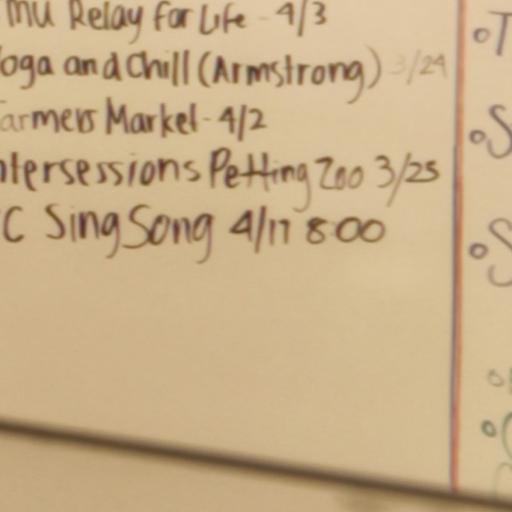 MU Relay for Life - 4/3
oga and Chill (Armstrong) 3/24
armers Market - 4/2
ntersessions Petting Zoo 3/25
C Sing Song 4/17 8:00